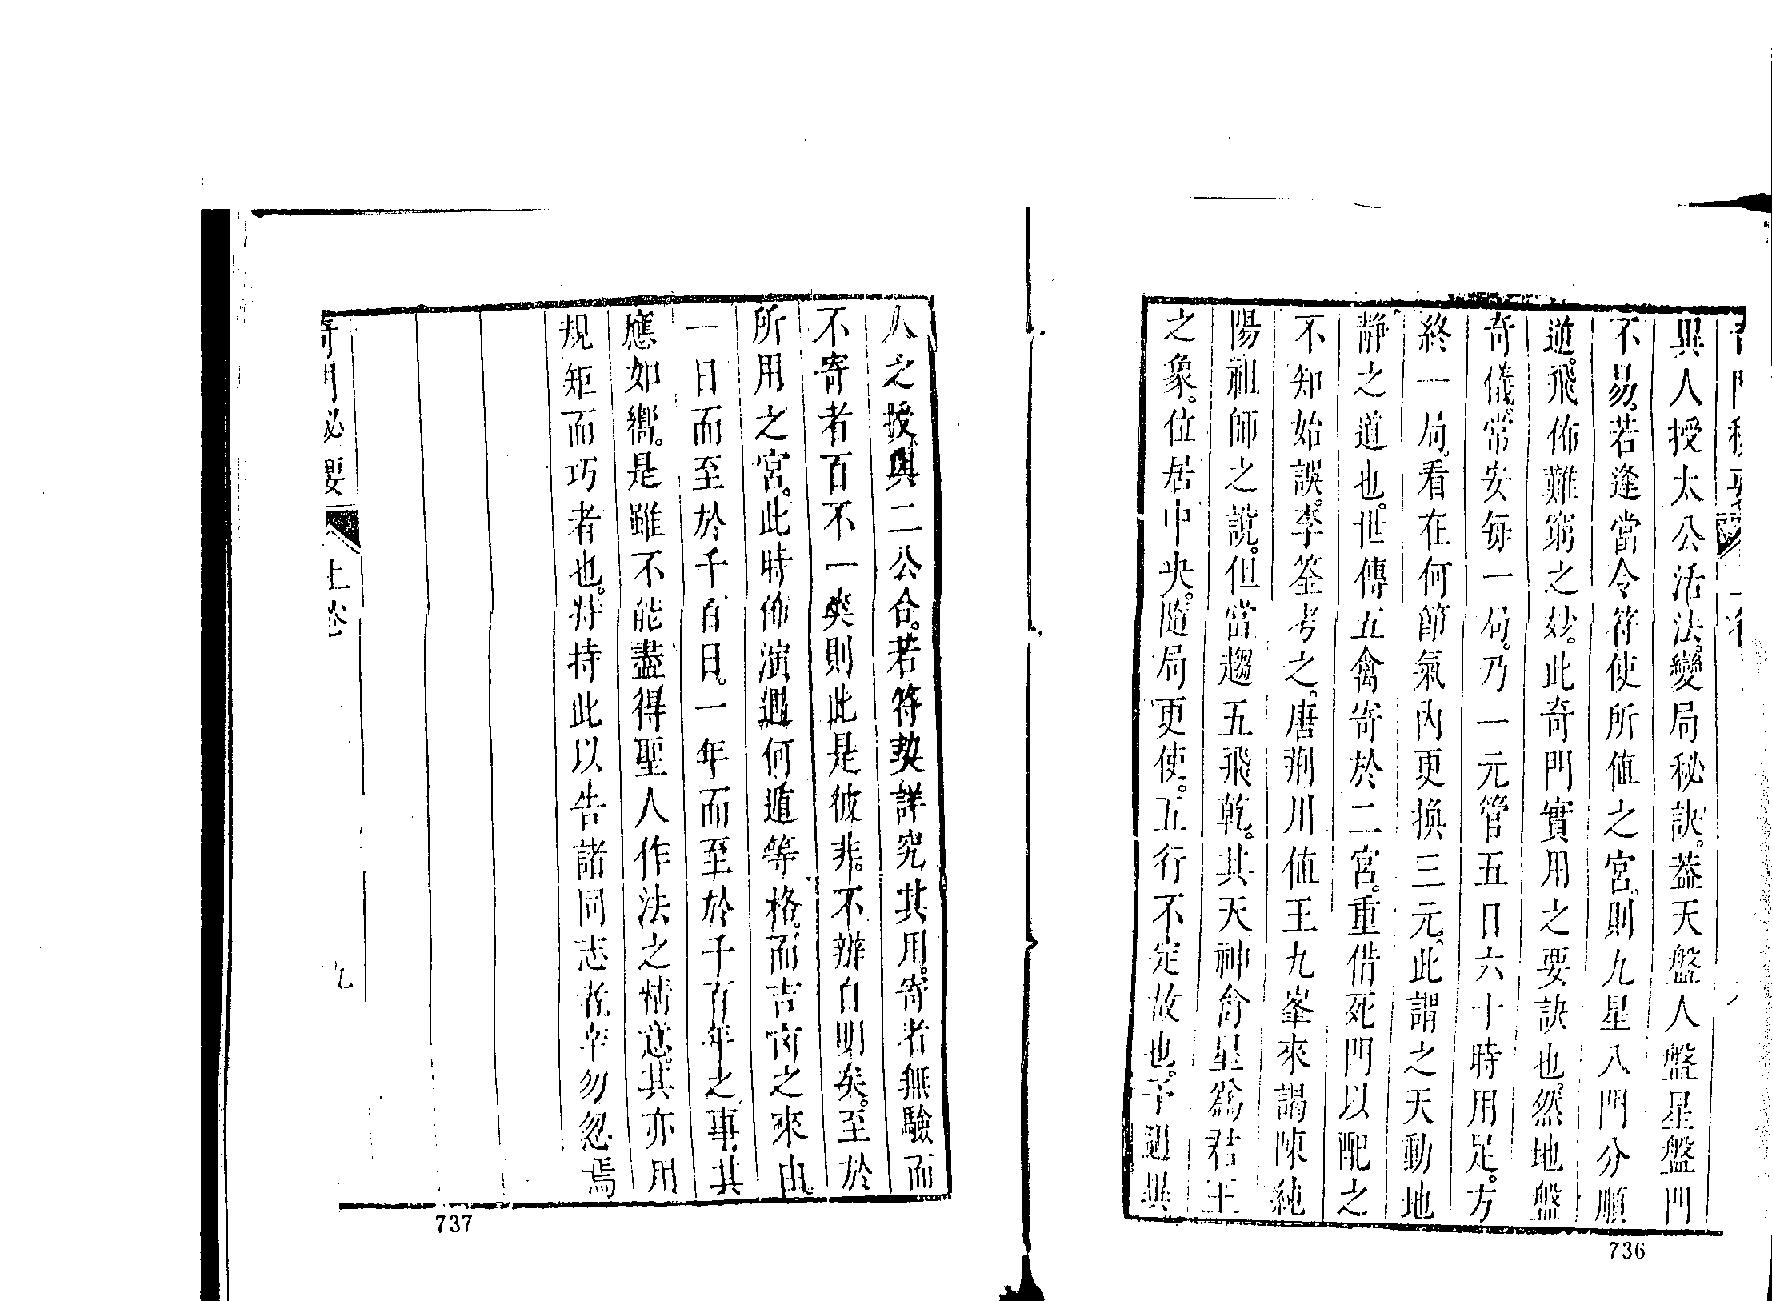 異人授太公活法。變局秘訣。蓋天盤人盤星盤門
不易。若逢當令符使所値之宮。則九星八門分順
逆。飛佈難窮之妙。此奇門實用之要訣也。然地盤
奇儀。常安每一局。乃一元管五日六十時用足。方
終一局。看在何節氣內更換三元。此謂之天動地
靜之道也。世傳五禽寄於二宮。重借死門以配之
不知始誤。李筌考之。唐荆川值王九峯來謁陳純
陽祖師之說。但當趨五飛乾。其天神禽星爲君王
之象。位居中央。隨局更使。五行不定故也。予遇異
736
人之授。與二公合。若符契詳究其用。寄者無驗而
不寄者百不一爽則此是彼非。不辨自明矣。至於
所用之宮。此時佈演遇何遁等格。而吉凶之來由。
一日而至於千百日。一年而至於千百年之事。其
應如嚮。是雖不能盡得聖人作法之精意。其亦用
規矩而巧者也。特持此以告諸同志者。幸勿忽焉
奇門秘要 上卷 九
737